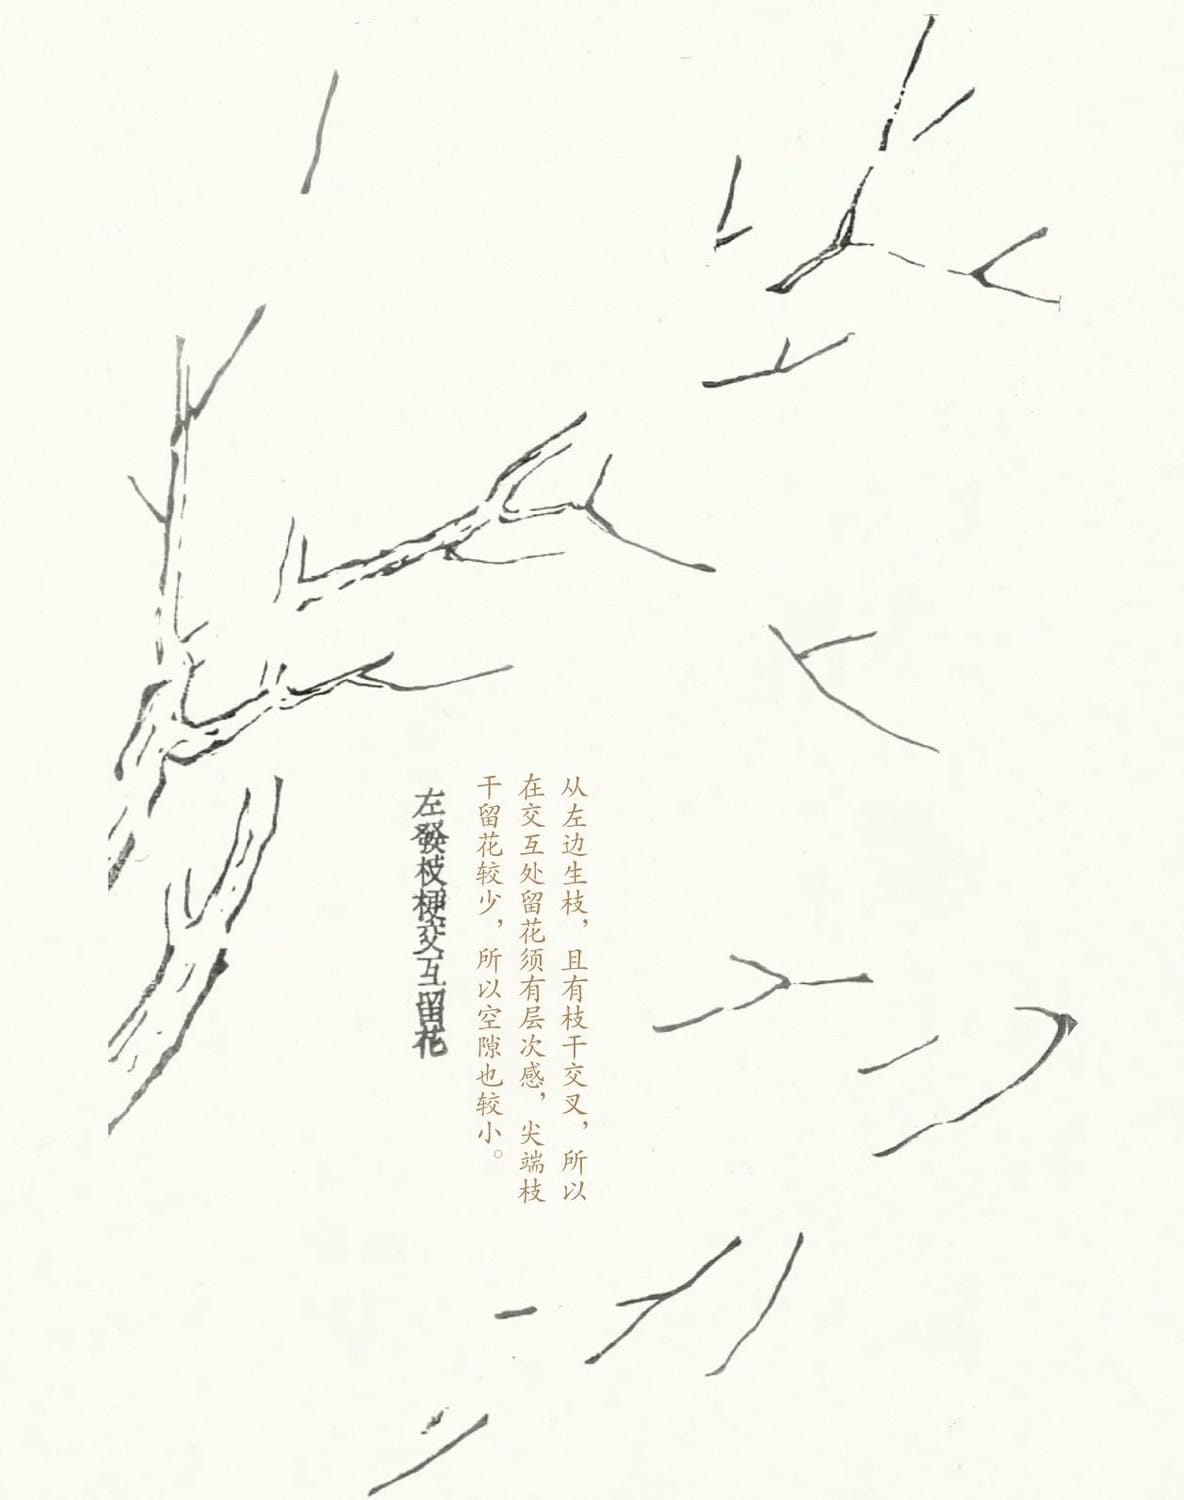 从左边生枝，且有枝干交叉，所以
在交互处留花须有层次感，尖端枝
干留花较少，所以空隙也较小。
左發枝梗交互留花